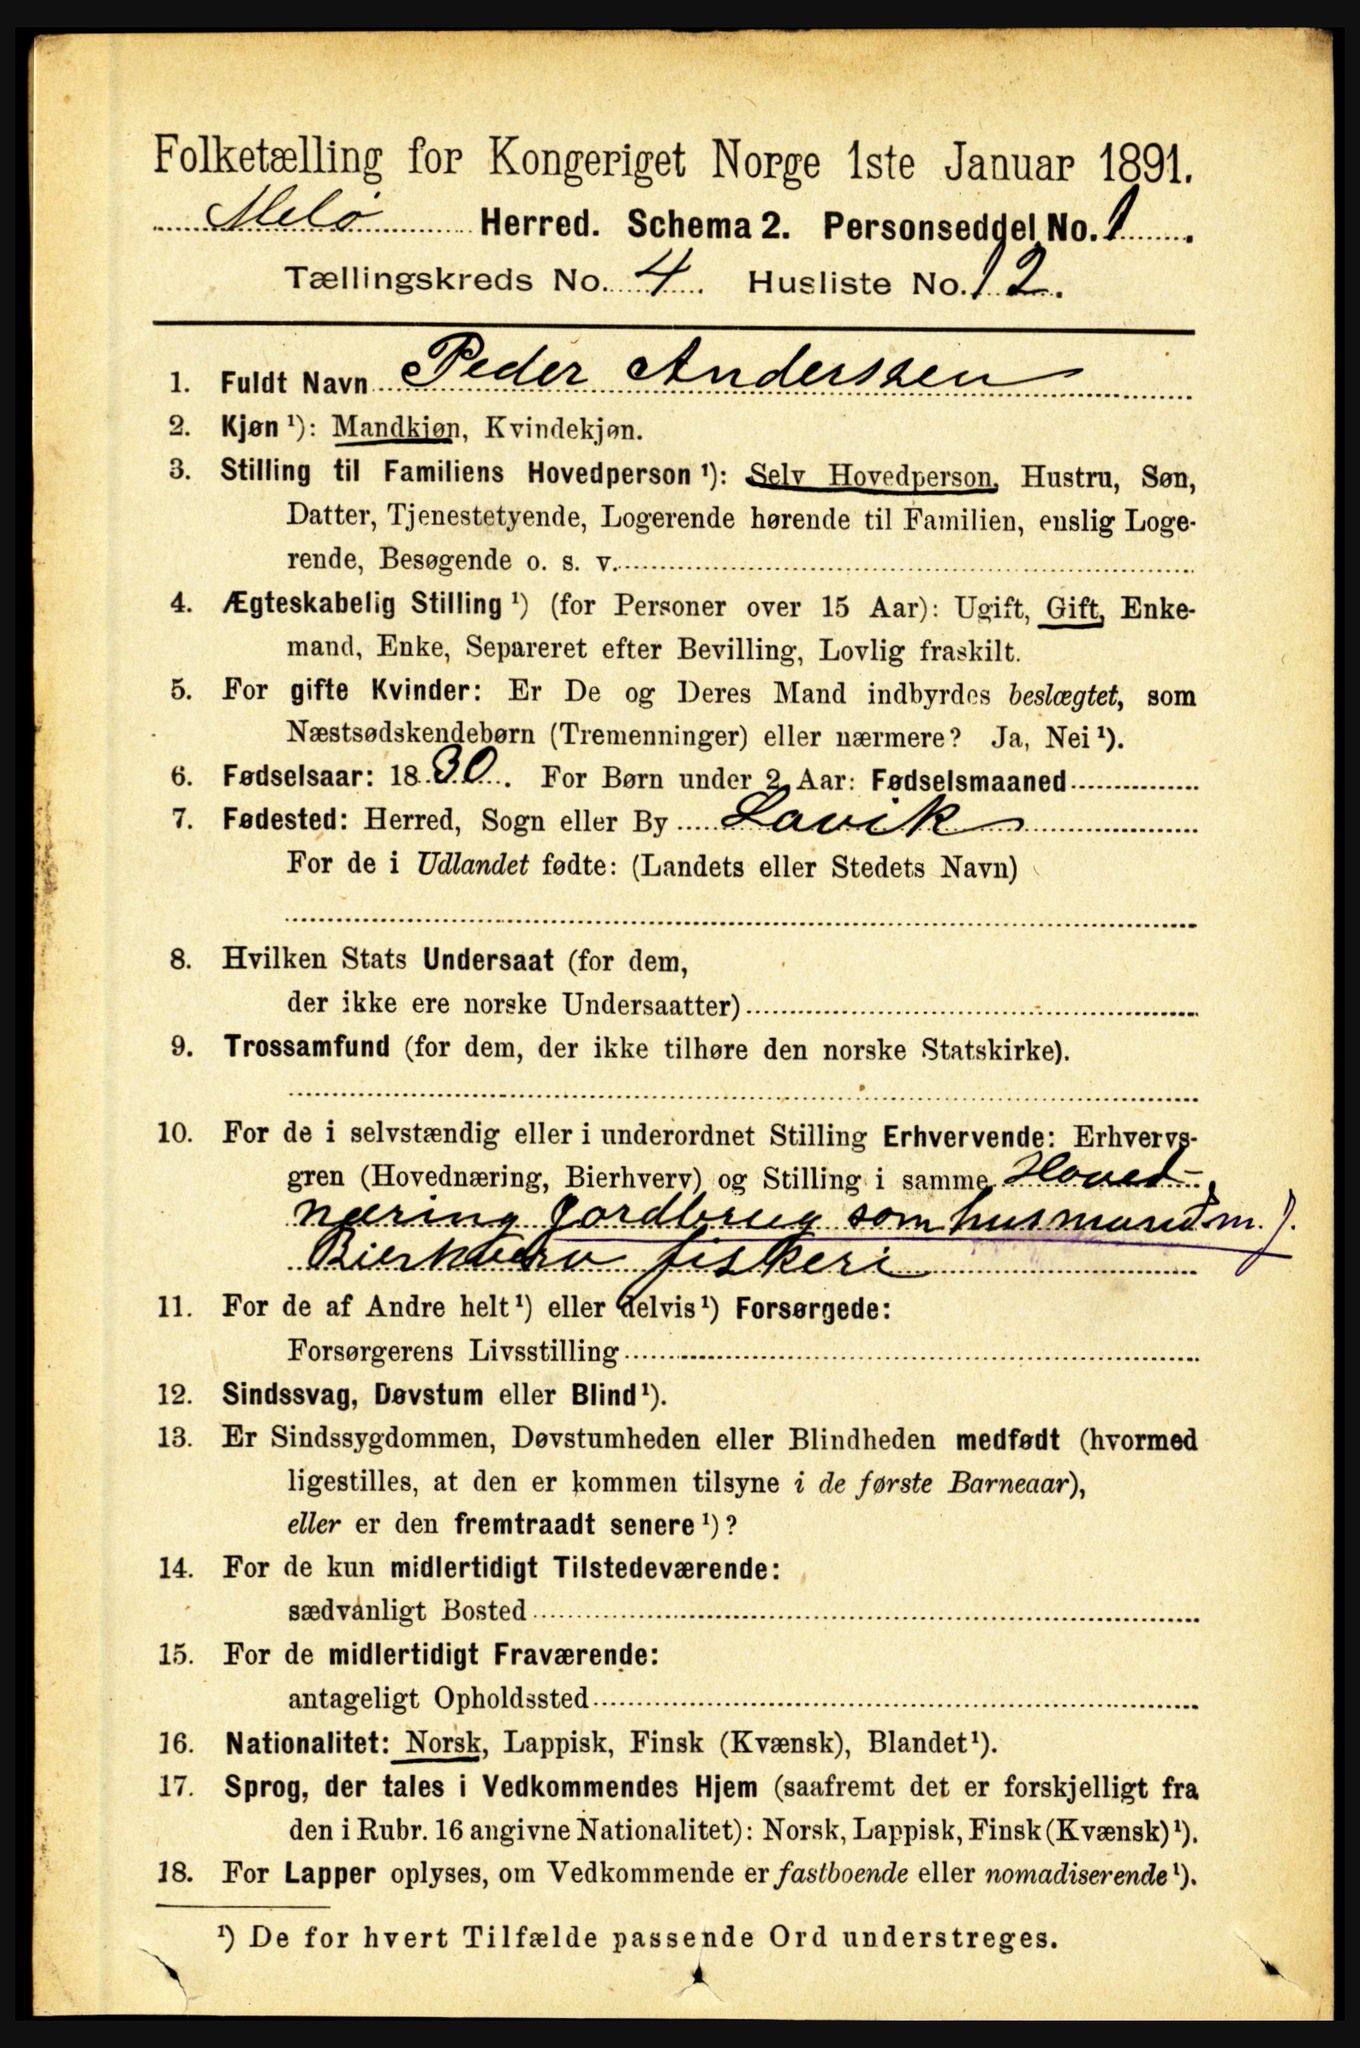 Folketælling for Kongeriget Norge 1ste Januar 1891.
Melö Herred. Schema 2. Personseddel No. 1.
Tællingskreds No. 4. Husliste No. 12.
1. Fuldt Navn Peder Anderssen
2. Kjøn ¹): Mandkjøn, Kvindekjøn.
3. Stilling til Familiens Hovedperson ¹): Selv Hovedperson, Hustru, Søn,
Datter, Tjenestetyende, Logerende hørende til Familien, enslig Loge-
rende, Besøgende o. s. v.
4. Ægteskabelig Stilling ¹) (for Personer over 15 Aar): Ugift, Gift, Enke-
mand, Enke, Separeret efter Bevilling, Lovlig fraskilt.
5. For gifte Kvinder: Er De og Deres Mand indbyrdes beslægtet, som
Næstsødskendebørn (Tremenninger) eller nærmere? Ja, Nei ¹).
6. Fødselsaar: 1830. For Børn under 2 Aar: Fødselsmaaned
7. Fødested: Herred, Sogn eller By Lavik
For de i Udlandet fødte: (Landets eller Stedets Navn)
8. Hvilken Stats Undersaat (for dem,
der ikke ere norske Undersaatter)
9. Trossamfund (for dem, der ikke tilhøre den norske Statskirke).
10. For de i selvstændig eller i underordnet Stilling Erhvervende: Erhvervs-
gren (Hovednæring, Bierhverv) og Stilling i samme Hoved-
næring Jordbrug som husmand m. J.
Bierhverv fiskeri
11. For de af Andre helt ¹) eller delvis ¹) Forsørgede:
Forsørgerens Livsstilling
12. Sindssvag, Døvstum eller Blind ¹).
13. Er Sindssygdommen, Døvstumheden eller Blindheden medfødt (hvormed
ligestilles, at den er kommen tilsyne i de første Barneaar),
eller er den fremtraadt senere ¹)?
14. For de kun midlertidigt Tilstedeværende:
sædvanligt Bosted
15. For de midlertidigt Fraværende:
antageligt Opholdssted
16. Nationalitet: Norsk, Lappisk, Finsk (Kvænsk), Blandet ¹).
17. Sprog, der tales i Vedkommendes Hjem (saafremt det er forskjelligt fra
den i Rubr. 16 angivne Nationalitet): Norsk, Lappisk, Finsk (Kvænsk) ¹).
18. For Lapper oplyses, om Vedkommende er fastboende eller nomadiserende ¹).
¹) De for hvert Tilfælde passende Ord understreges.